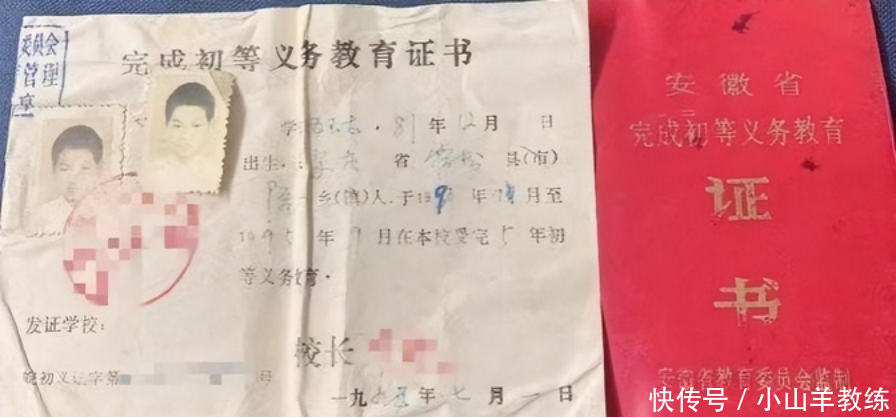 委员会
管理
章
完成初等义务教育证书
学 81年12月 日
出生 省 县(市)
乡(镇)人.于19 年 月至
1995年9月在本校受完5年初
等义务教育.
发证学校:
校长
皖初义证字第 号
一九九五年七月一日
安徽省
完成初等义务教育
证
书
安徽省教育委员会监制
快传号/小山羊教练